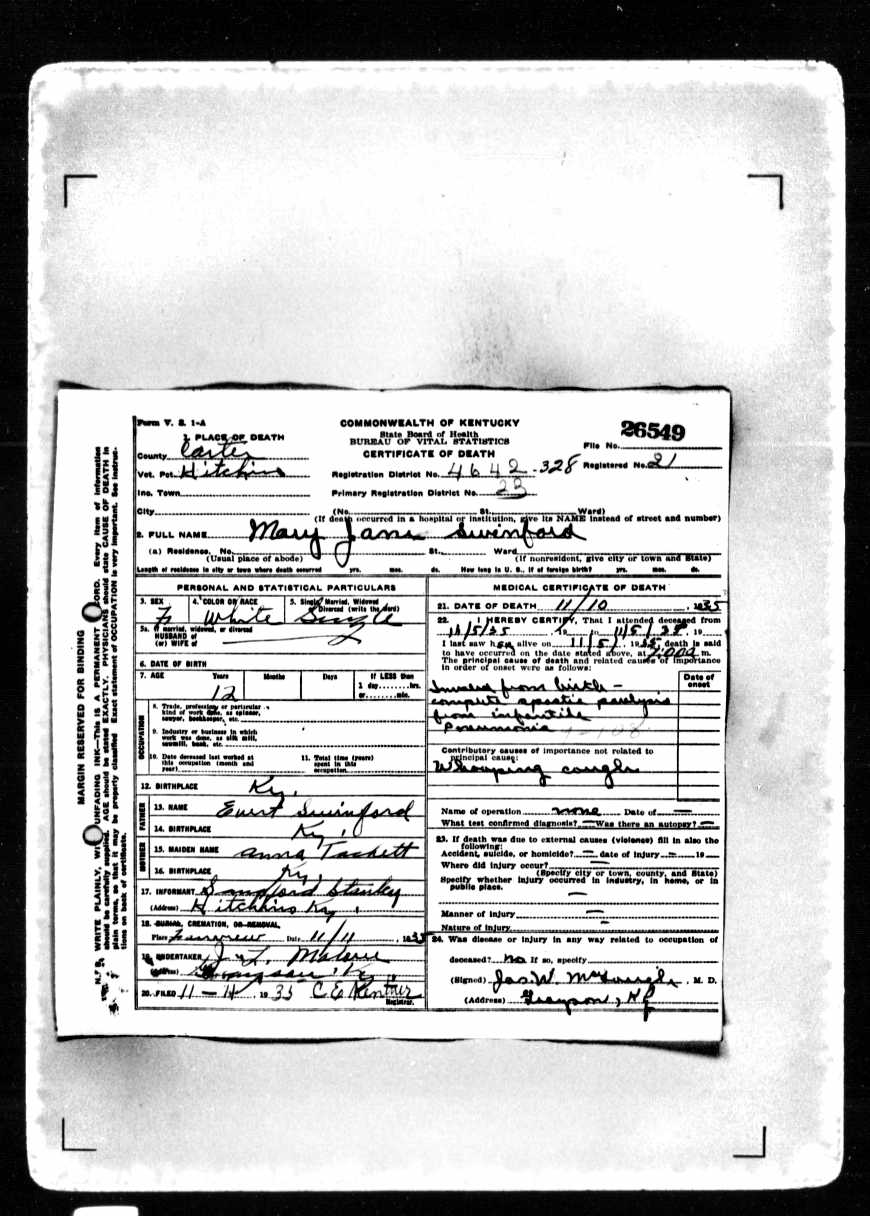 Form V. S. 1-A
COMMONWEALTH OF KENTUCKY
State Board of Health
BUREAU OF VITAL STATISTICS
CERTIFICATE OF DEATH
26549
File No.
Registered No. 21
1. PLACE OF DEATH
County Carter
Vot. Pct. Hitchins
Registration District No. 4642-328
Inc. Town
Primary Registration District No. 23
City
(No. St. Ward)
(If death occurred in a hospital or institution, give its NAME instead of street and number)
2. FULL NAME Mary Jane Swinford
(a) Residence. No. St. Ward
(Usual place of abode) (If nonresident, give city or town and State)
Length of residence in city or town where death occurred yrs. mos. ds. How long in U. S., if of foreign birth? yrs. mos. ds.
PERSONAL AND STATISTICAL PARTICULARS
3. SEX F
4. COLOR OR RACE White
5. Single, Married, Widowed
Divorced (write the word) Single
5a. If married, widowed, or divorced
HUSBAND of
(or) WIFE of
6. DATE OF BIRTH
7. AGE Years Months Days If LESS than
1 day hrs.
or min.
12
OCCUPATION
8. Trade, profession, or particular
kind of work done, as spinner,
sawyer, bookkeeper, etc.
9. Industry or business in which
work was done, as silk mill,
sawmill, bank, etc.
10. Date deceased last worked at
this occupation (month and
year)
11. Total time (years)
spent in this
occupation
12. BIRTHPLACE Ky.
FATHER
13. NAME Evert Swinford
14. BIRTHPLACE Ky.
MOTHER
15. MAIDEN NAME Anna Tackett
16. BIRTHPLACE Ky.
17. INFORMANT Sanford
(Address) Hitchins Ky.
18. BURIAL, CREMATION, OR REMOVAL
Place Date 11/11, 1935
19. UNDERTAKER J. L.
(Address) Grayson, Ky.
20. FILED 11-14, 1935 C E
Registrar.
MEDICAL CERTIFICATE OF DEATH
21. DATE OF DEATH 11/10, 1935
22. I HEREBY CERTIFY, That I attended deceased from
11/5/35 to 11/5/35, 19
I last saw her alive on 11/5/, 1935 death is said
to have occurred on the date stated above, at 2:00 a m.
The principal cause of death and related causes of importance
in order of onset were as follows:
Date of
onset
Invalid from birth -
complete spastic paralysis
from infantile
Pneumonia
Contributory causes of importance not related to
principal cause:
Whooping cough
Name of operation none Date of —
What test confirmed diagnosis? — Was there an autopsy? —
23. If death was due to external causes (violence) fill in also the
following:
Accident, suicide, or homicide? — date of injury — 19 —
Where did injury occur? —
(Specify city or town, county, and State)
Specify whether injury occurred in industry, in home, or in
public place.
—
Manner of injury —
Nature of injury —
24. Was disease or injury in any way related to occupation of
deceased? no If so, specify
(Signed) Jas. W. , M. D.
(Address) Grayson, Ky
MARGIN RESERVED FOR BINDING
N. B. WRITE PLAINLY, WITH UNFADING INK—THIS IS A PERMANENT RECORD. Every item of information
should be carefully supplied. AGE should be stated EXACTLY. PHYSICIANS should state CAUSE OF DEATH in
plain terms, so that it may be properly classified. Exact statement of OCCUPATION is very important. See instruc-
tions on back of certificate.